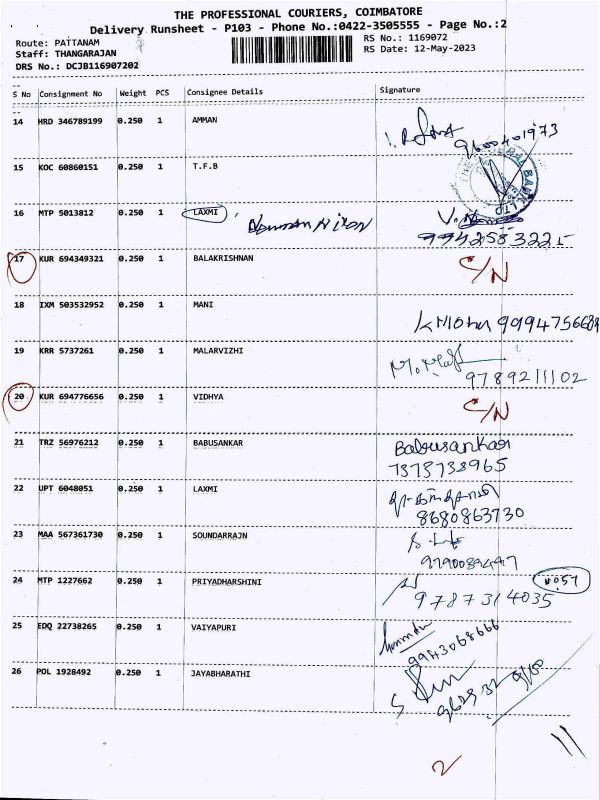 THE PROFESSIONAL COURIERS, COIMBATORE
Delivery Runsheet - P103 - Phone No.:0422-3505555 - Page No.:2
Route: PATTANAM
RS No.: 1169072
Staff: THANGARAJAN
RS Date: 12-May-2023
DRS No.: DCJB116907202
S No Consignment No Weight PCS Consignee Details Signature
14 HRD 346789199 0.250 1 AMMAN
9600401973
15 KOC 60860151 0.250 1 T.F.B
16 MTP 5013812 0.250 1 LAXMI
9942583225
17 KUR 694349321 0.250 1 BALAKRISHNAN C/N
18 IXM 503532952 0.250 1 MANI
9994756684
19 KRR 5737261 0.250 1 MALARVIZHI
9789211102
20 KUR 694776656 0.250 1 VIDHYA C/N
21 TRZ 56976212 0.250 1 BABUSANKAR Babusankar
7373733965
22 UPT 6048051 0.250 1 LAXMI
8680863730
23 MAA 567361730 0.250 1 SOUNDARRAJN
9790089497
24 MTP 1227662 0.250 1 PRIYADHARSHINI No57
9787314035
25 EDQ 22738265 0.250 1 VAIYAPURI
9943068666
26 POL 1928492 0.250 1 JAYABHARATHI
2 11